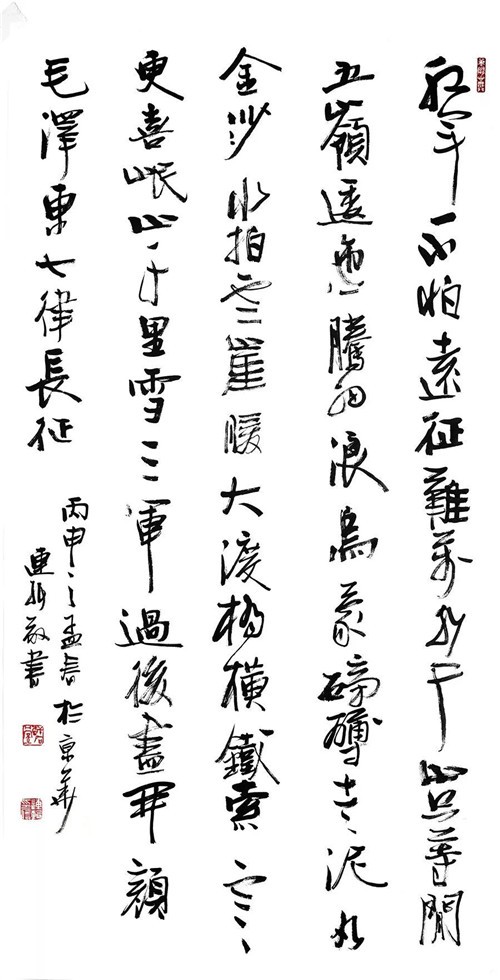 紅軍不怕遠征難萬水千山只等閒
五嶺逶迤騰細浪烏蒙磅礴走泥丸
金沙水拍雲崖暖大渡橋橫鐵索寒
更喜岷山千里雪三軍過後盡開顏
毛澤東七律長征
丙申之孟春於京華
連書